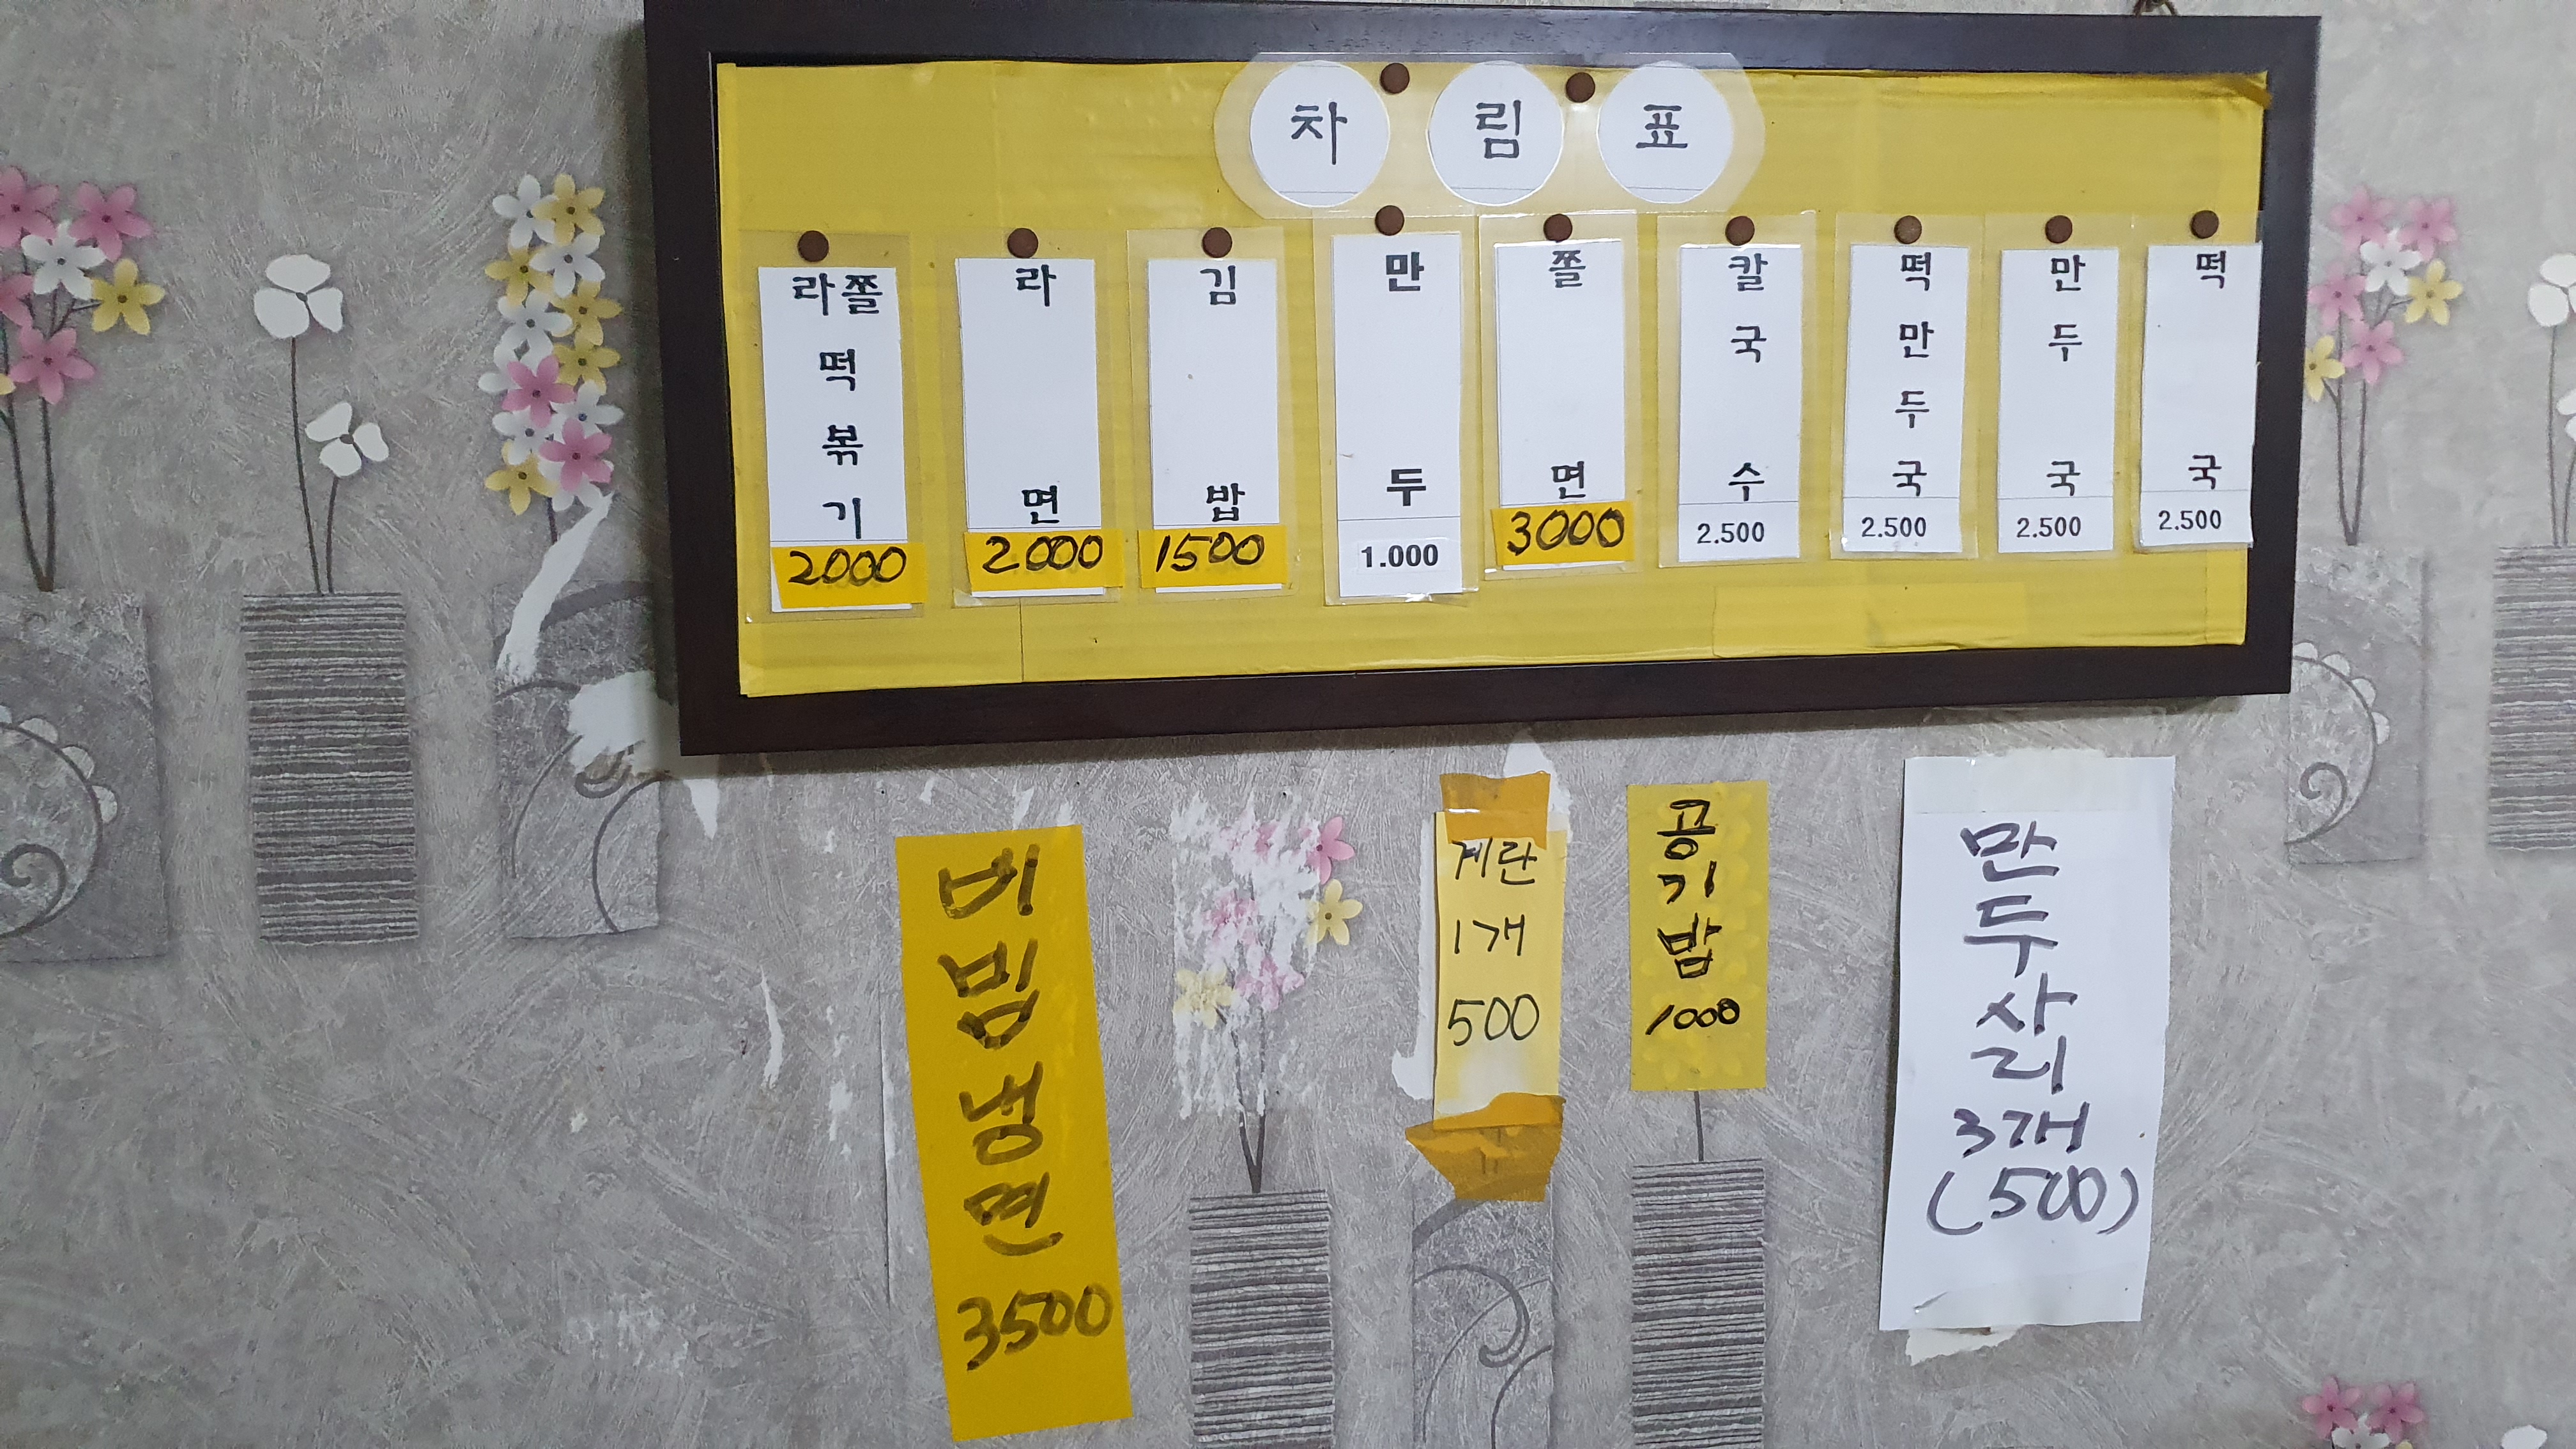 차림표
라쫄떡볶기
2000
라면
2.000
김밥
1500
만두
1.000
쫄면
3000
칼국수
2.500
떡만두국
2.500
만두국
2.500
떡국
2.500
비빔냉면
3500
계란
1개
500
공기밥
1000
만두사리
3개
(500)